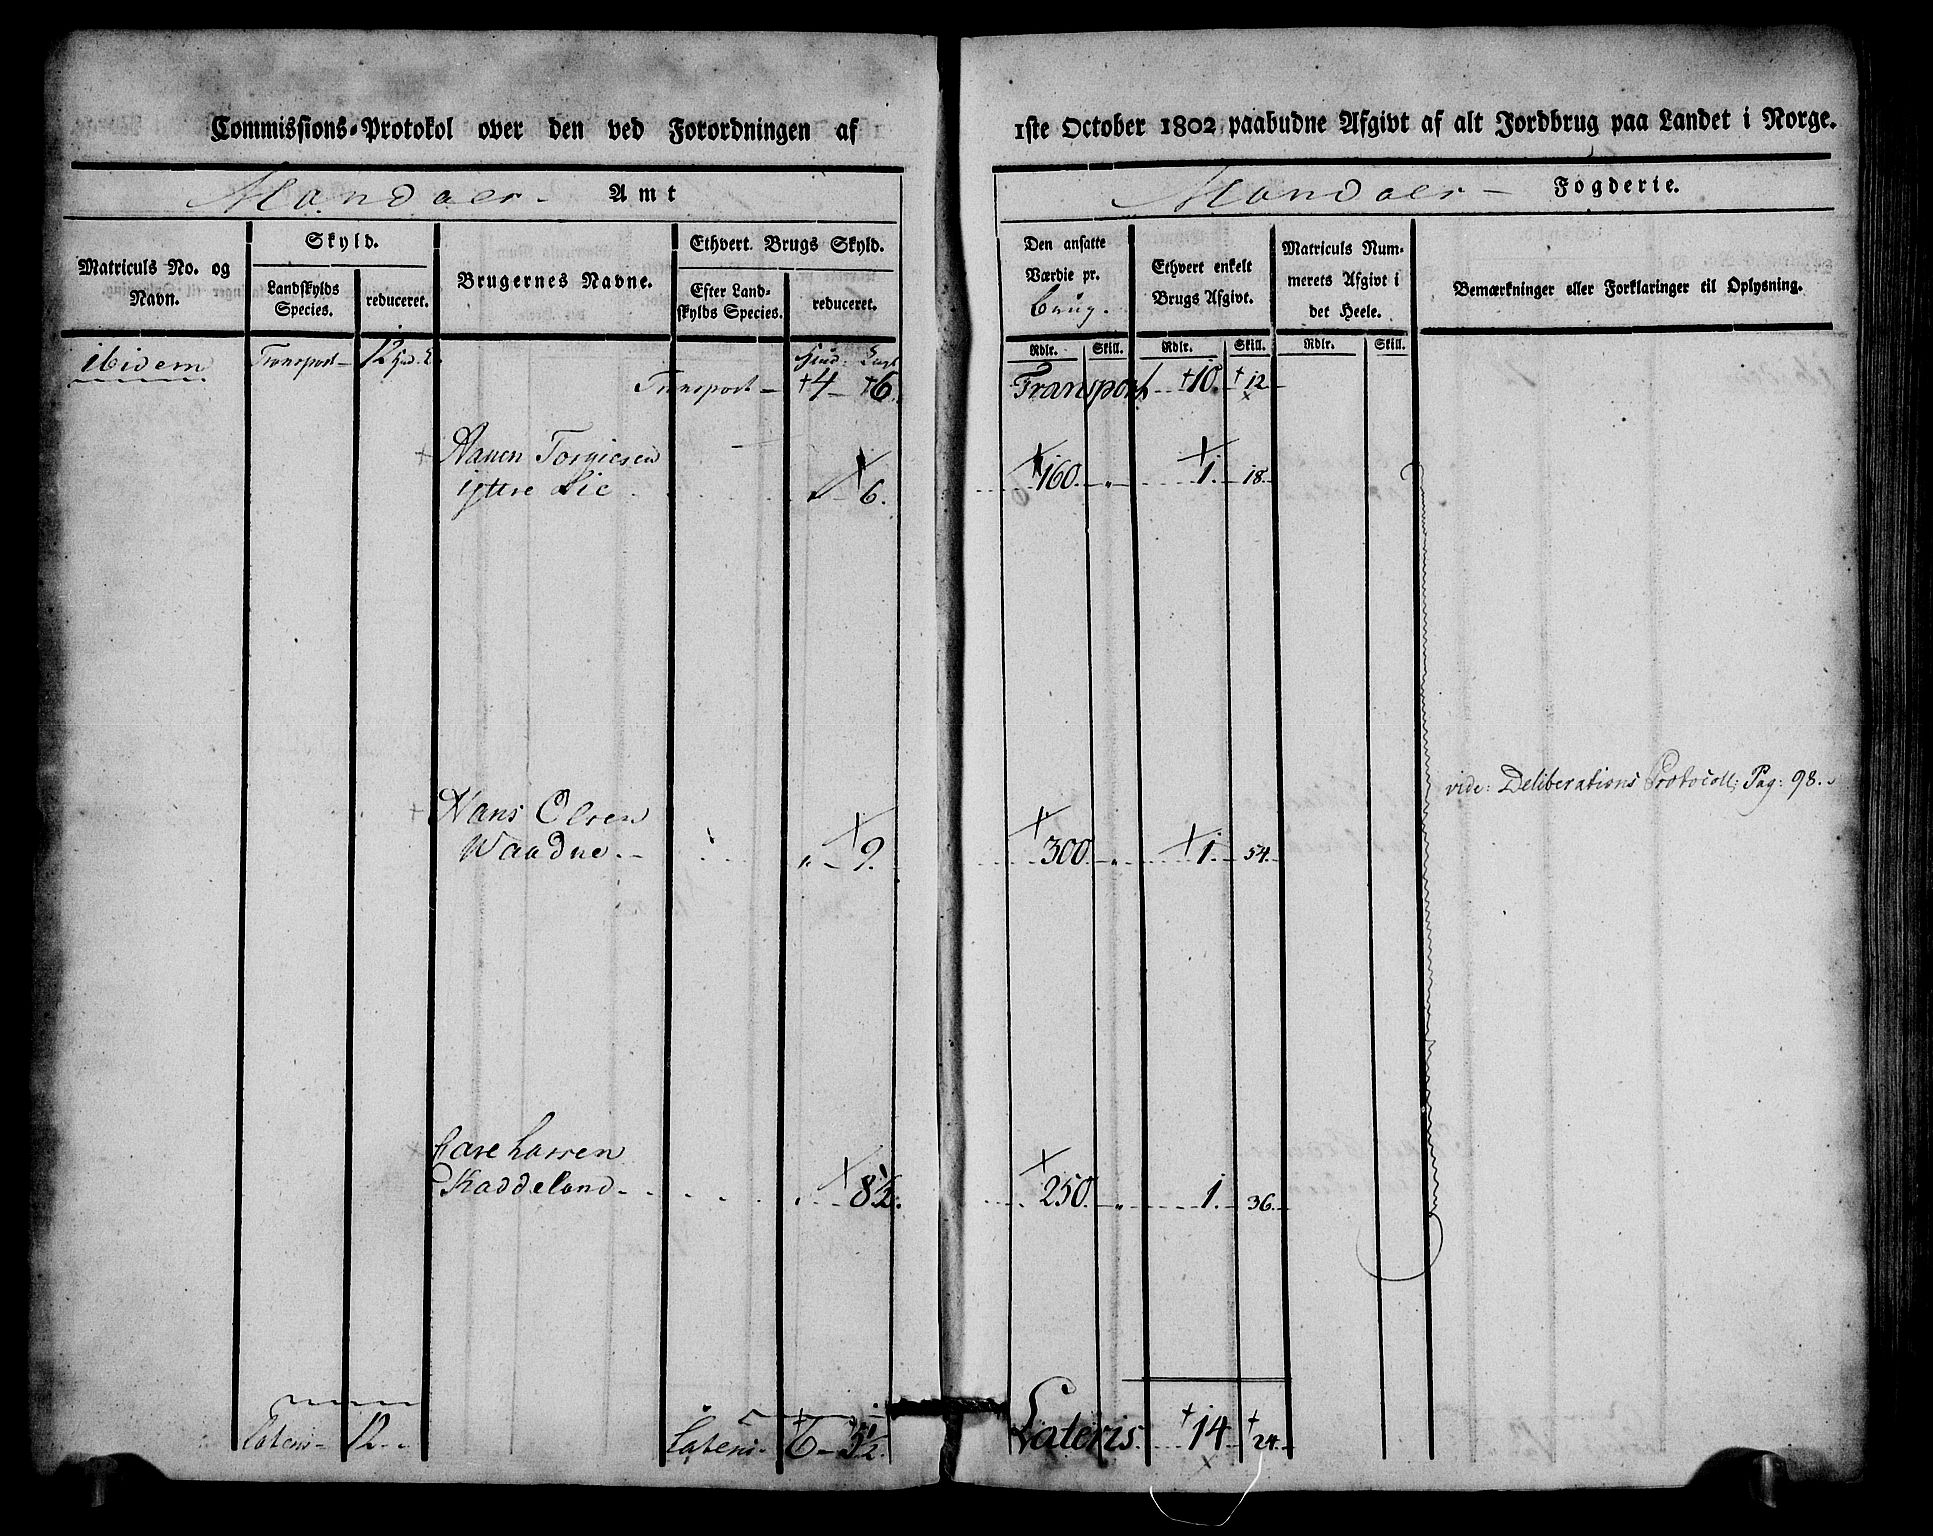 Commissions-Protokol over den ved Forordningen af
1ste October 1802 paabudne Afgivt af alt Jordbrug paa Landet i Norge.
Mandaes - Amt
Mandaes - Fogderie.
Matriculs No. og Navn.
Skyld.
Landskylds Species.
reduceret.
Brugernes Navne.
Ethvert Brugs Skyld.
Efter Landskylds Species.
reduceret.
Den ansatte Værdie pr. Brug.
Ethvert enkelt Brugs Afgivt.
Matriculs Nummerets Afgivt i det Heele.
Bemærkninger eller Forklaringer til Oplysning.
Rdlr. Skill. Rdlr. Skill. Rdlr. Skill.
ibidem Transport - 12
Transport - 4 - 6.
Transport 10. 12
Torgiesen
yttre Lie 6. 160. - „ - 1. 18.
vide: Deliberations Protocoll; Pag: 98.
Hans Olsen
Waadne. - „ - 9. 300. - „ 1. 54.
Larsen
Haddeland - 8½. 250. - „ 1. 36.
Lateris - 12. Lateris - 6 - 5½.
Lateris 14. 24.